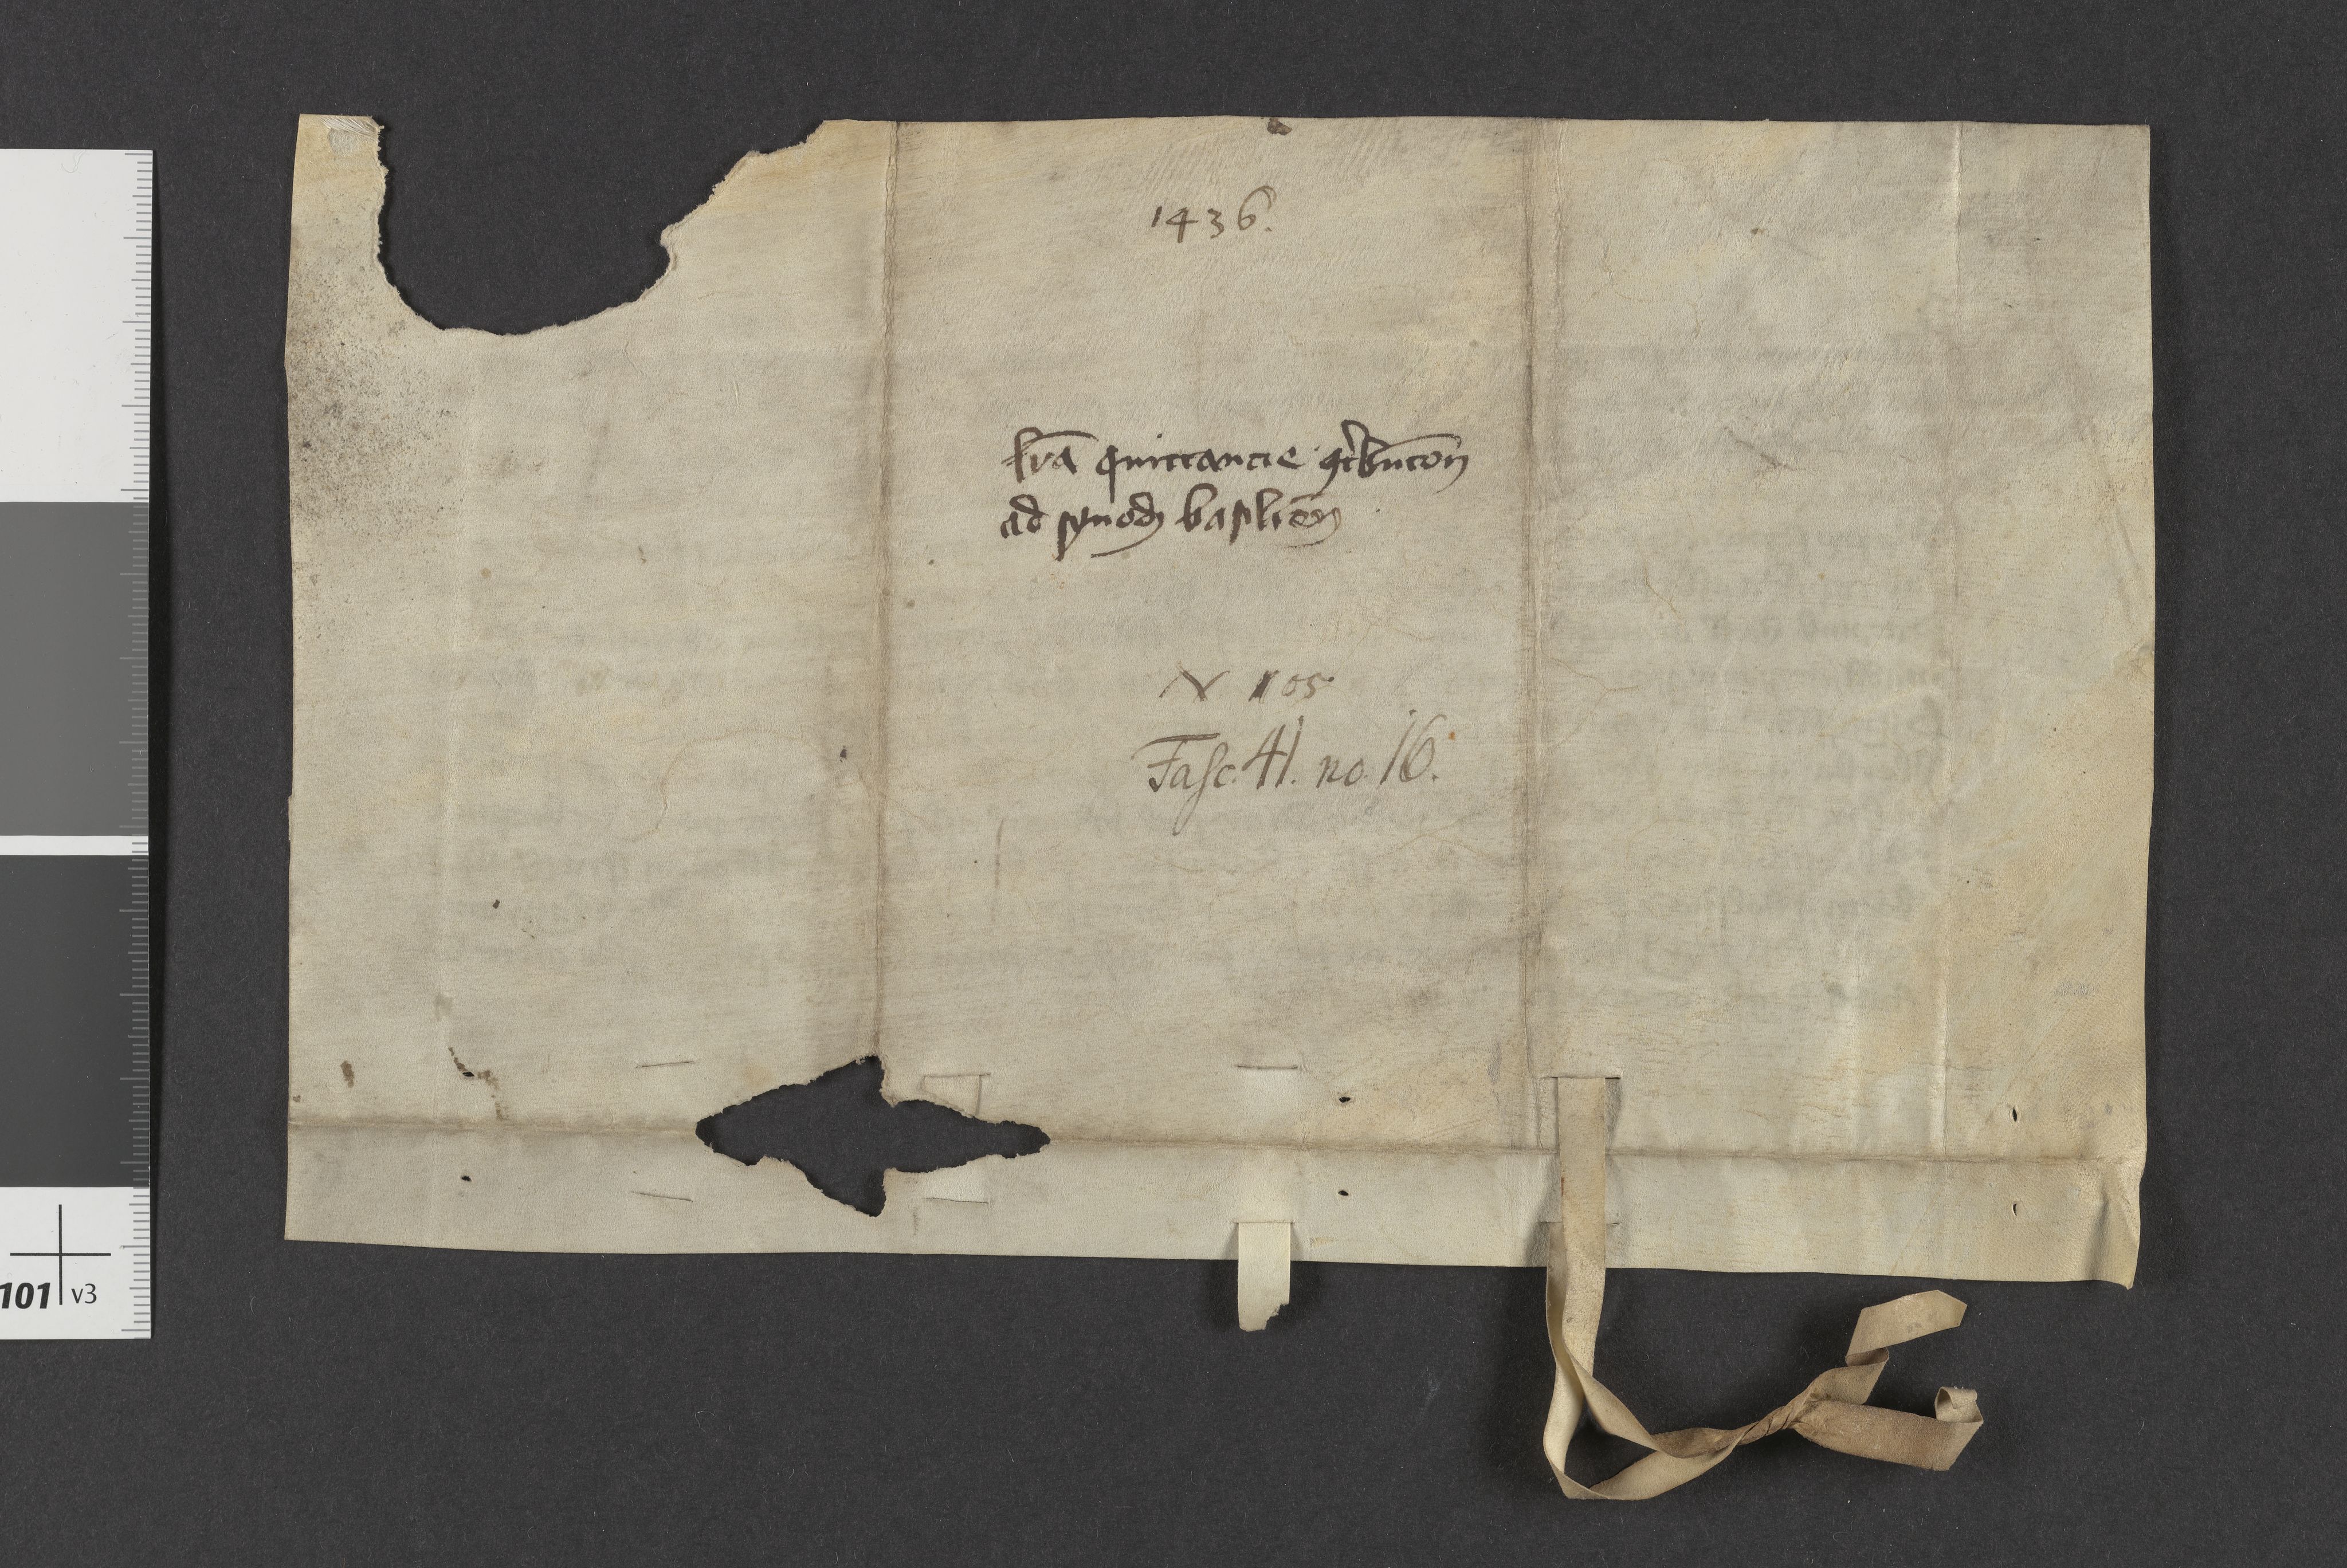 1436.
lr̄a quittancie ꝯt͛bucōn
ad synodū basiliēn
N 105
Fasc. 41. no. 16.
101 v3